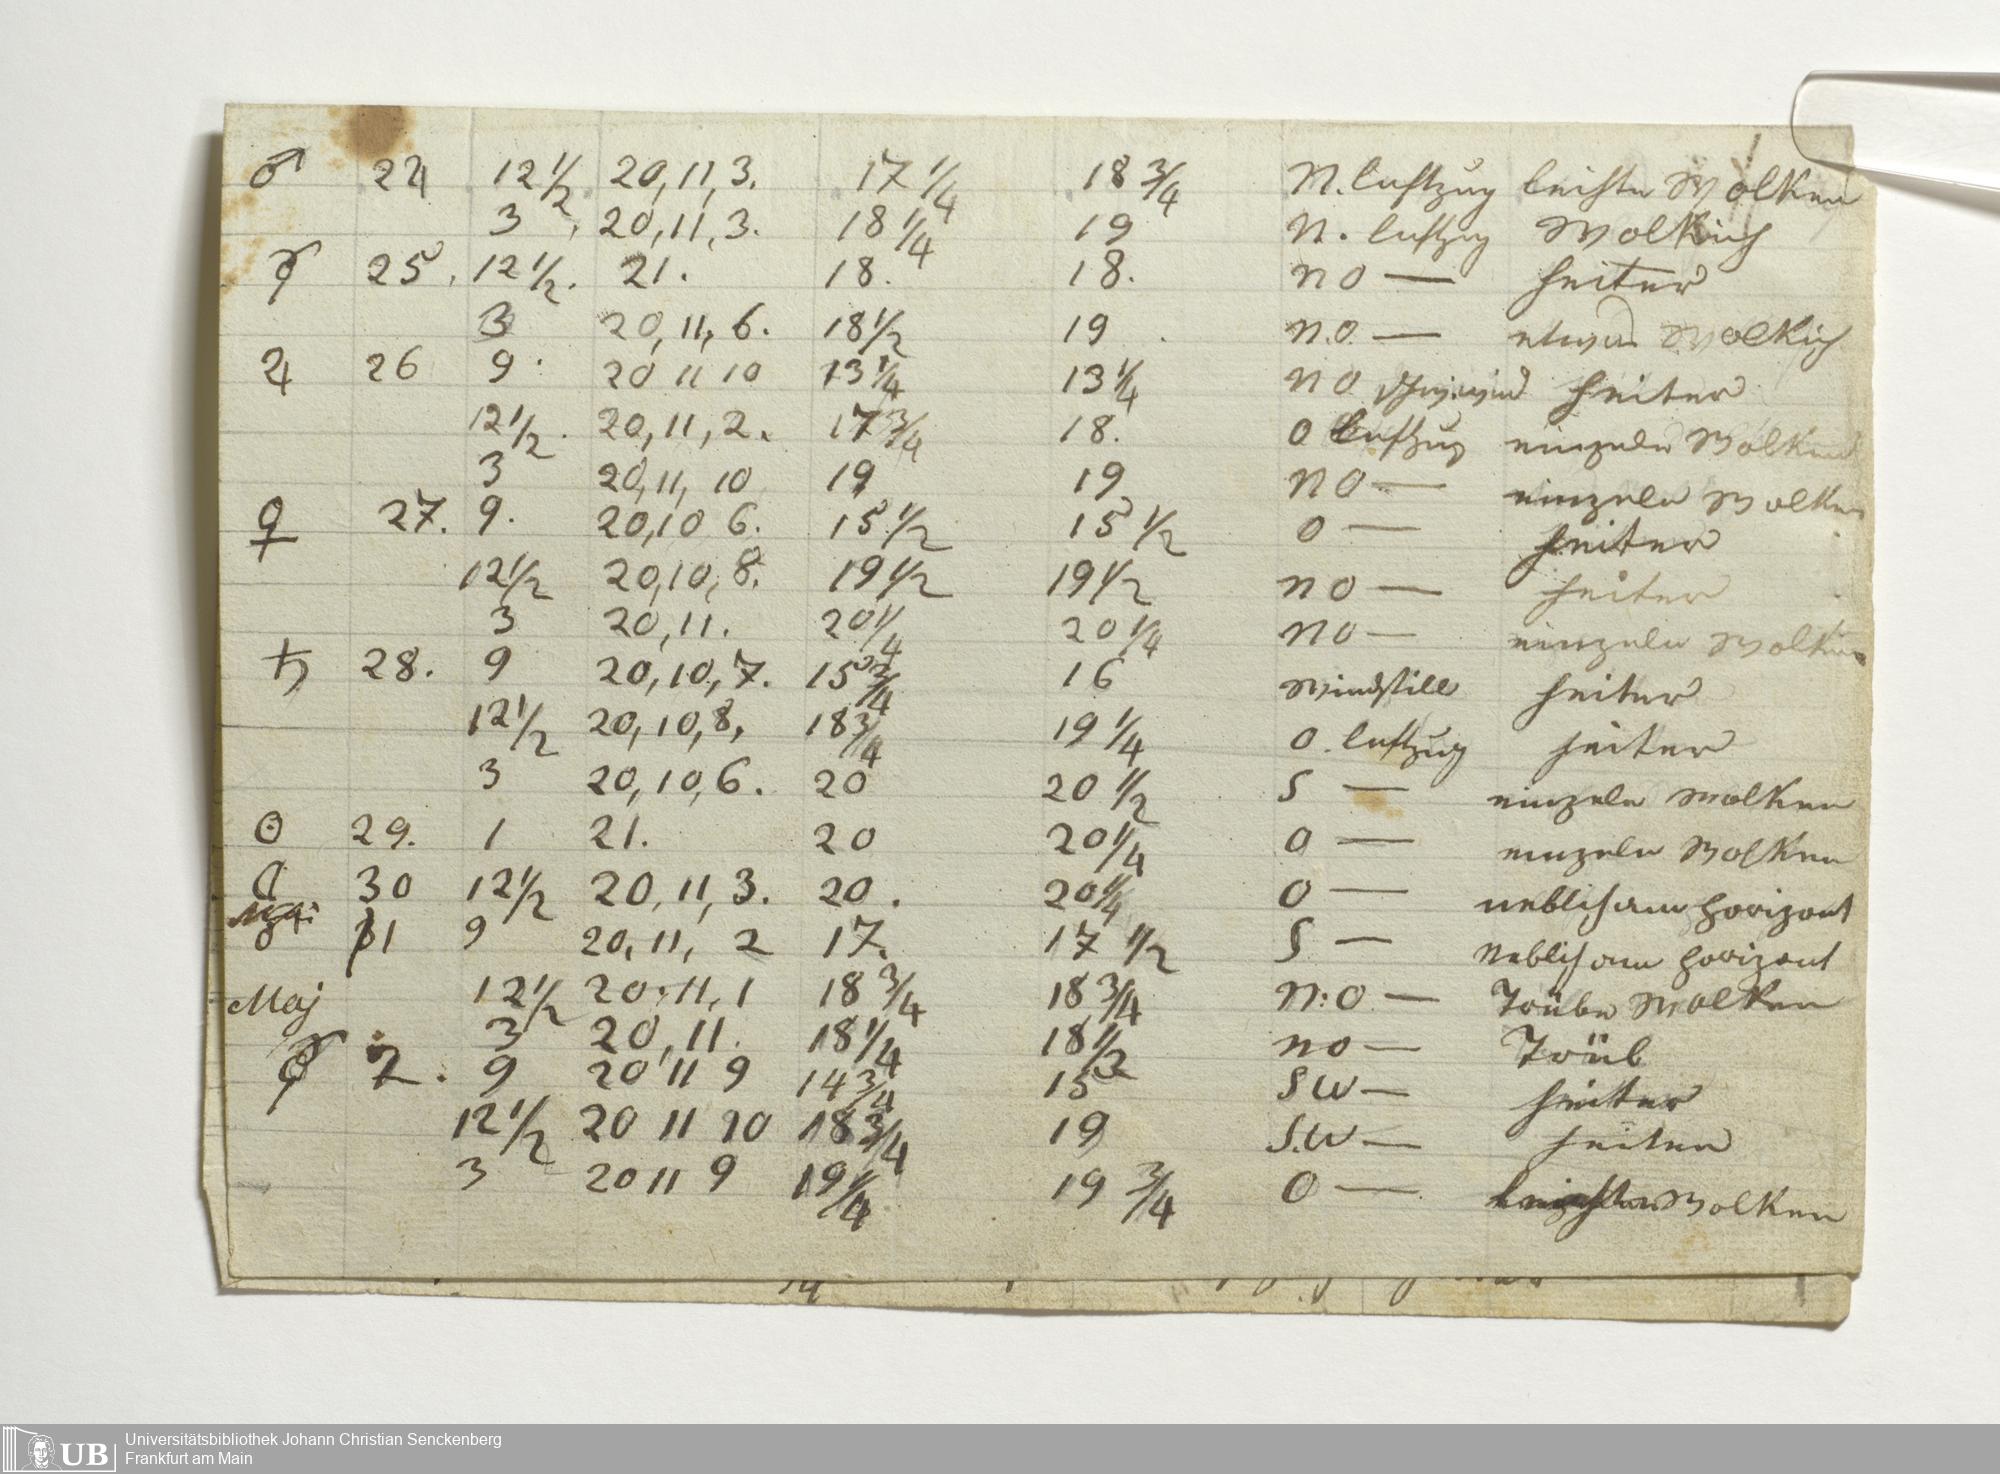 ♂ 24 12 1/2 20, 11, 3. 17 1/4 18 3/4 N. luftzug leichte Wolken
3 20, 11, 3. 18 1/4 19 N. luftzug Wolkich
☿ 25. 12 1/2. 21. 18. 18. NO — heiter
3 20, 11, 6. 18 1/2 19 N.O. — etwas Wolkich
♃ 26 9. 20 11 10 13 1/4 13 1/4 NO heiter
12 1/2. 20, 11, 2. 17 3/4 18. O Luftzug einzeln Wolken
3 20, 11, 10 19 19 NO — einzeln Wolken
♀ 27. 9. 20, 10 6. 15 1/2 15 1/2 O — heiter
12 1/2 20, 10, 8. 19 1/2 19 1/2 NO — heiter
3 20, 11. 20 1/4 20 1/4 NO — einzeln Wolken
♄ 28. 9 20, 10, 7. 15 3/4 16 Windstill heiter
12 1/2 20, 10, 8, 18 3/4 19 1/4 O. luftzug heiter
3 20, 10, 6. 20 20 1/2 S — einzeln Wolken
☉ 29. 1 21. 20 20 1/4 O — einzeln Wolken
☾ 30 12 1/2 20, 11, 3. 20. 20 1/4 O — neblich am horizont
Mai
♂ 1 9 20, 11, 2 17. 17 1/2 S — neblich am horizont
Maj 12 1/2 20, 11, 1 18 3/4 18 3/4 N:O — Trübe Wolken
3 20, 11. 18 1/4 18 1/2 NO — Trüb
☿ 2. 9 20 11 9 14 3/4 15 SW — heiter
12 1/2 20 11 10 18 3/4 19 S.W — heiter
3 20 11 9 19 1/4 19 3/4 O — leichte Wolken
UB Universitätsbibliothek Johann Christian Senckenberg
Frankfurt am Main